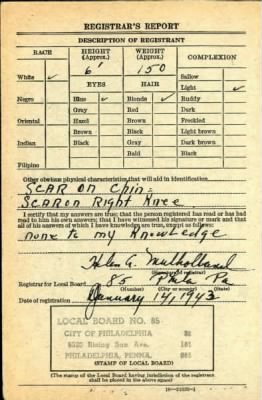 REGISTRAR'S REPORT
DESCRIPTION OF REGISTRANT
RACE HEIGHT (Approx.) WEIGHT (Approx.) COMPLEXION
6' 150 Sallow
White ✓ EYES HAIR Light ✓
Negro Blue ✓ Blonde ✓ Ruddy
Gray Red Dark
Oriental Hazel Brown Freckled
Brown Black Light brown
Indian Black Gray Dark brown
Bald Black
Filipino
Other obvious physical characteristics that will aid in identification
SCAR ON Chin-
SCAR on Right Knee
I certify that my answers are true; that the person registered has read or has had
read to him his own answers; that I have witnessed his signature or mark and that
all of his answers of which I have knowledge are true, except as follows:
none to my Knowledge
Helen G. Mulholland
(Signature of registrar)
Registrar for Local Board 85 Phila Pa
(Number) (City or county) (State)
Date of registration January 14, 1943
LOCAL BOARD NO. 85
CITY OF PHILADELPHIA
Rising Sun Ave. 101
PHILADELPHIA, PENNA.
(The stamp of the Local Board having jurisdiction of the registrant
shall be placed in the above space)